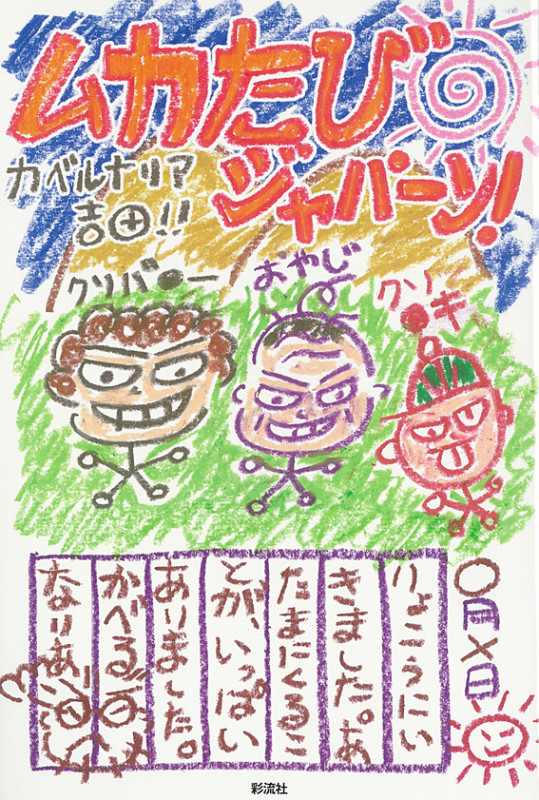 ムカたび
ジャパーン!
カベルナリア
吉田!!
クソバ●ー
おやじ
クソ
●キ
〇月×日
りょこうにい
きました。あ
たまにくるこ
とが、いっぱい
ありました。
かべる
なりあ
彩流社